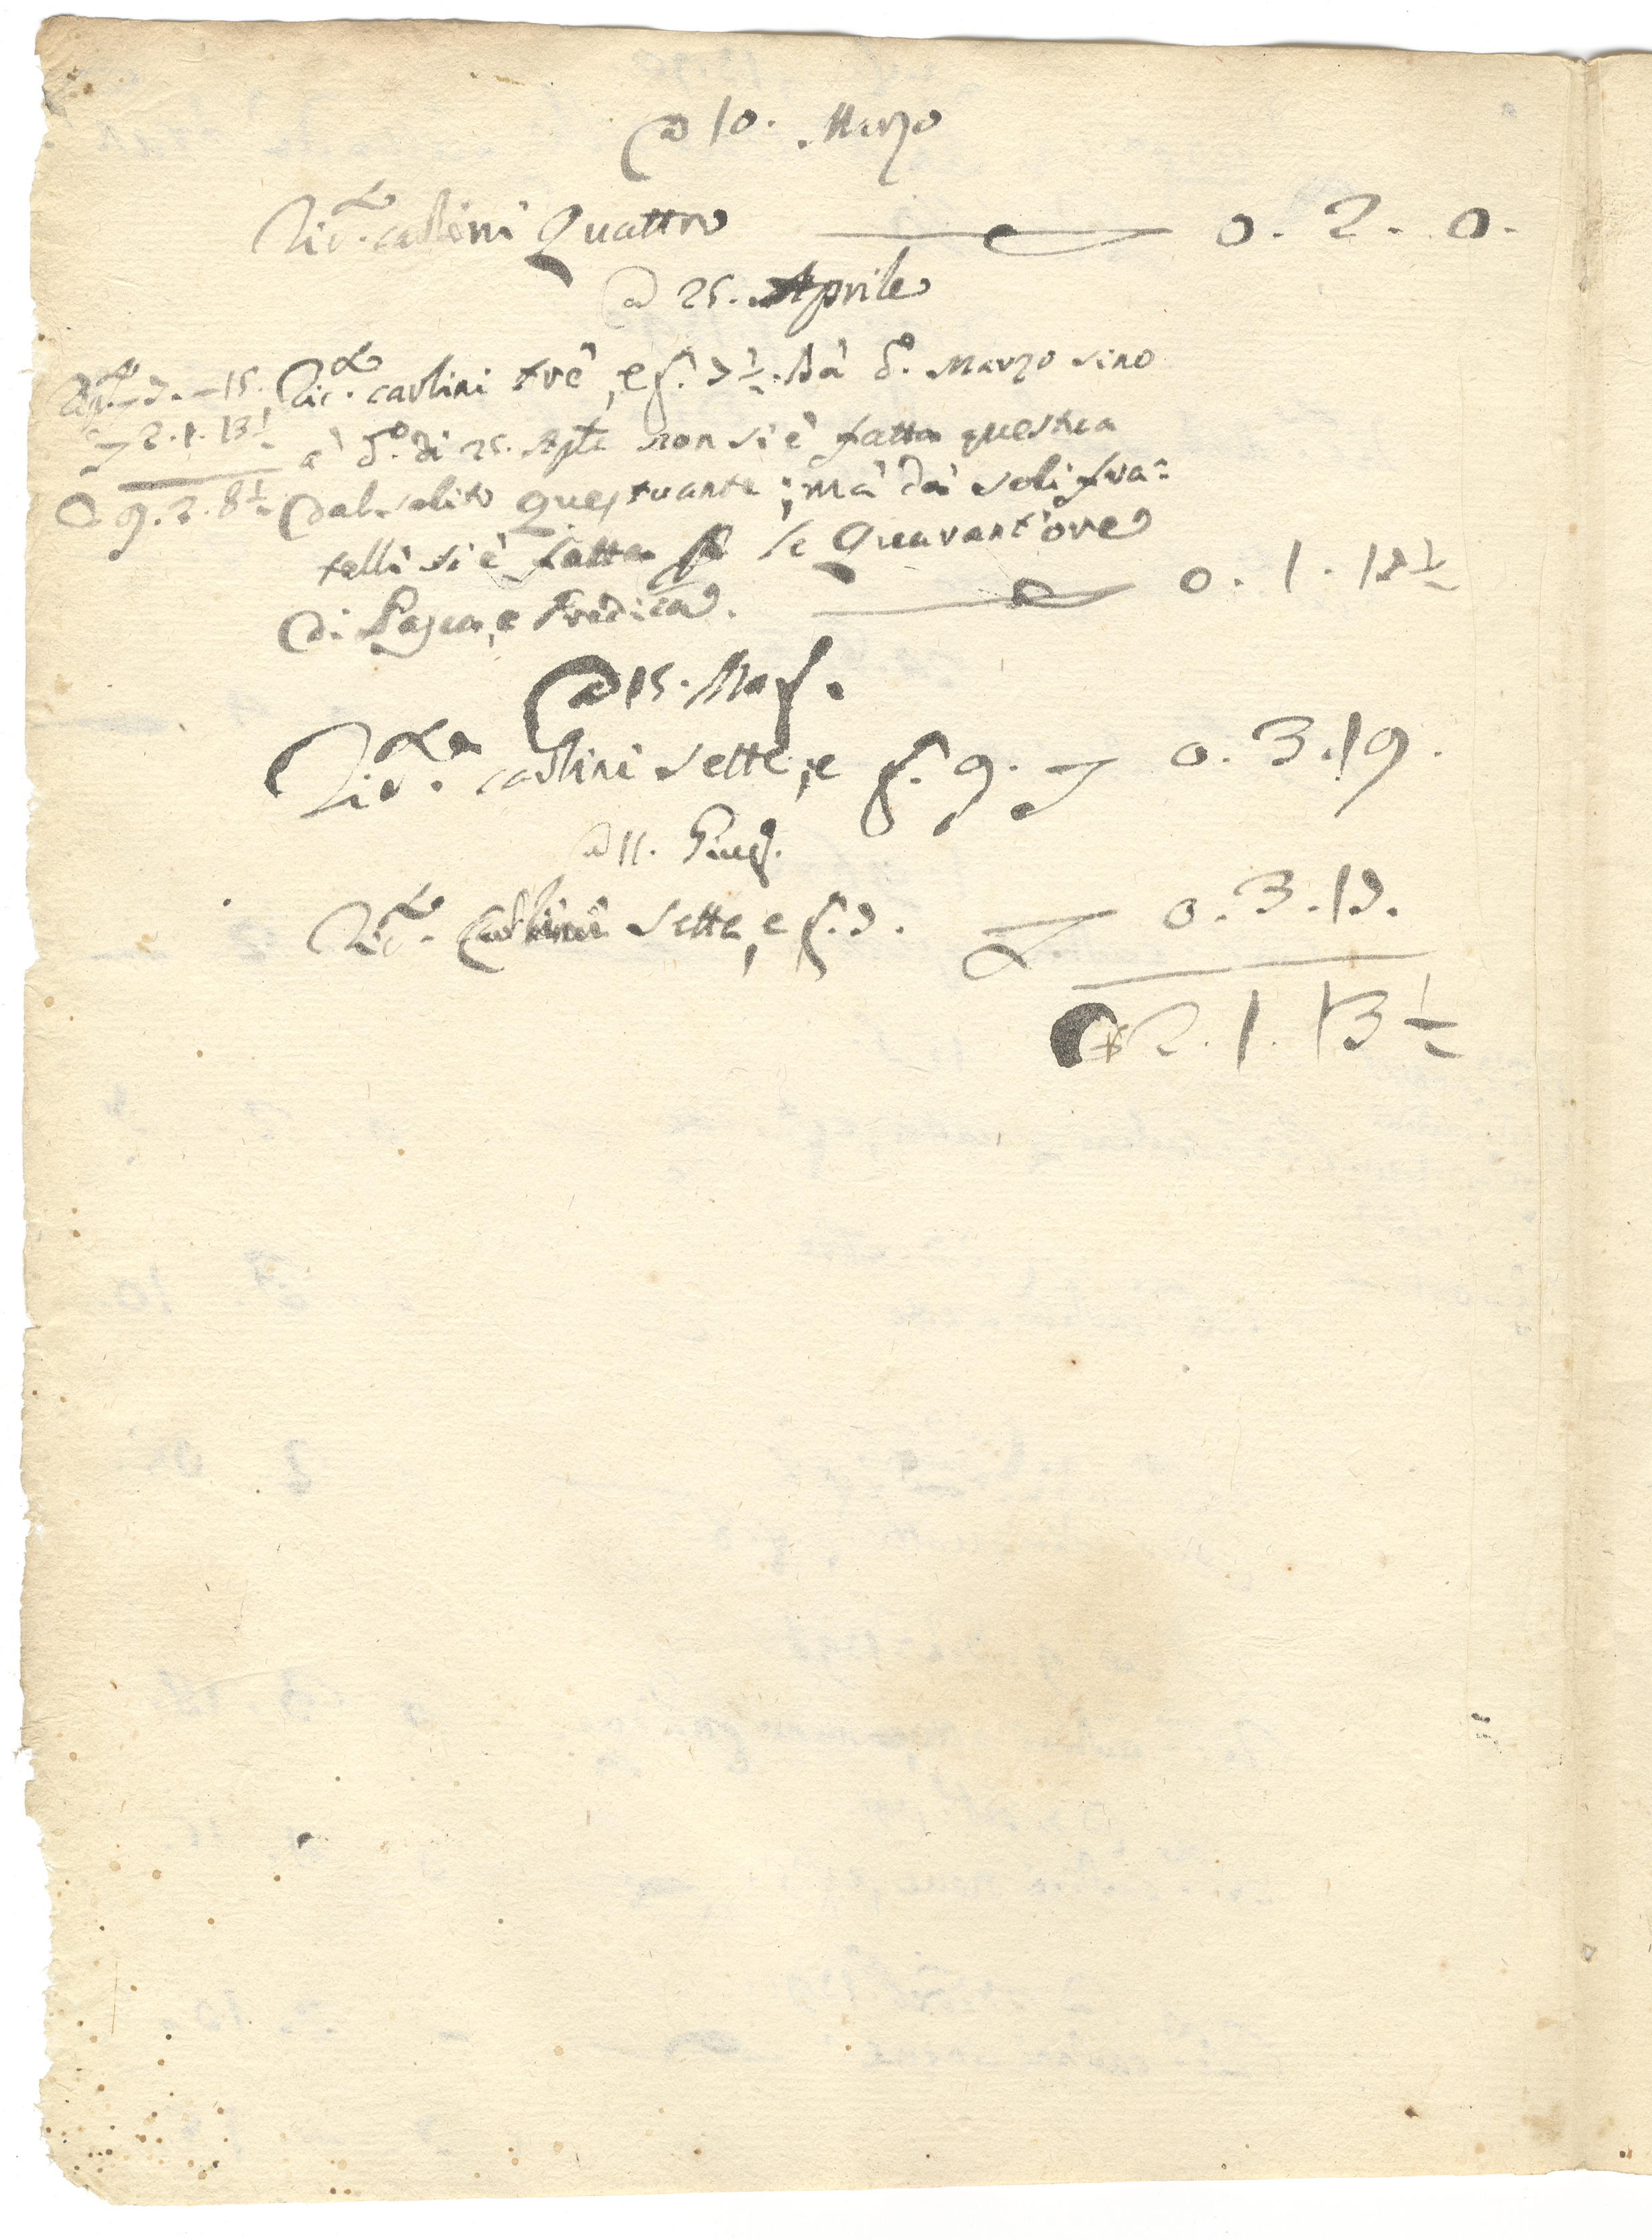 a 10. Marzo
Ric.ta carlini Quattro 0. 2. 0.
a 25. Aprile
Ric.ta carlini trè, e g. 3 ½. Dà d.o Marzo sino
à d.o di 25. Aple non si è fatta questua
dal solito questuante; mà dà soli fra=
telli si è fatta p le Quarant'ore
di Pasca, e Predica. 0. 1. 13 ½
7. - 15.
2. 1. 13 ½
9. 2. 8 ½
a 15. Mag.
Ric.ta carlini sette, e g. 9. 0. 3. 19.
a 11. Giug.
Ric.ta Carlini sette, e g. 3. 0. 3. 13.
2. 1. 13 ½